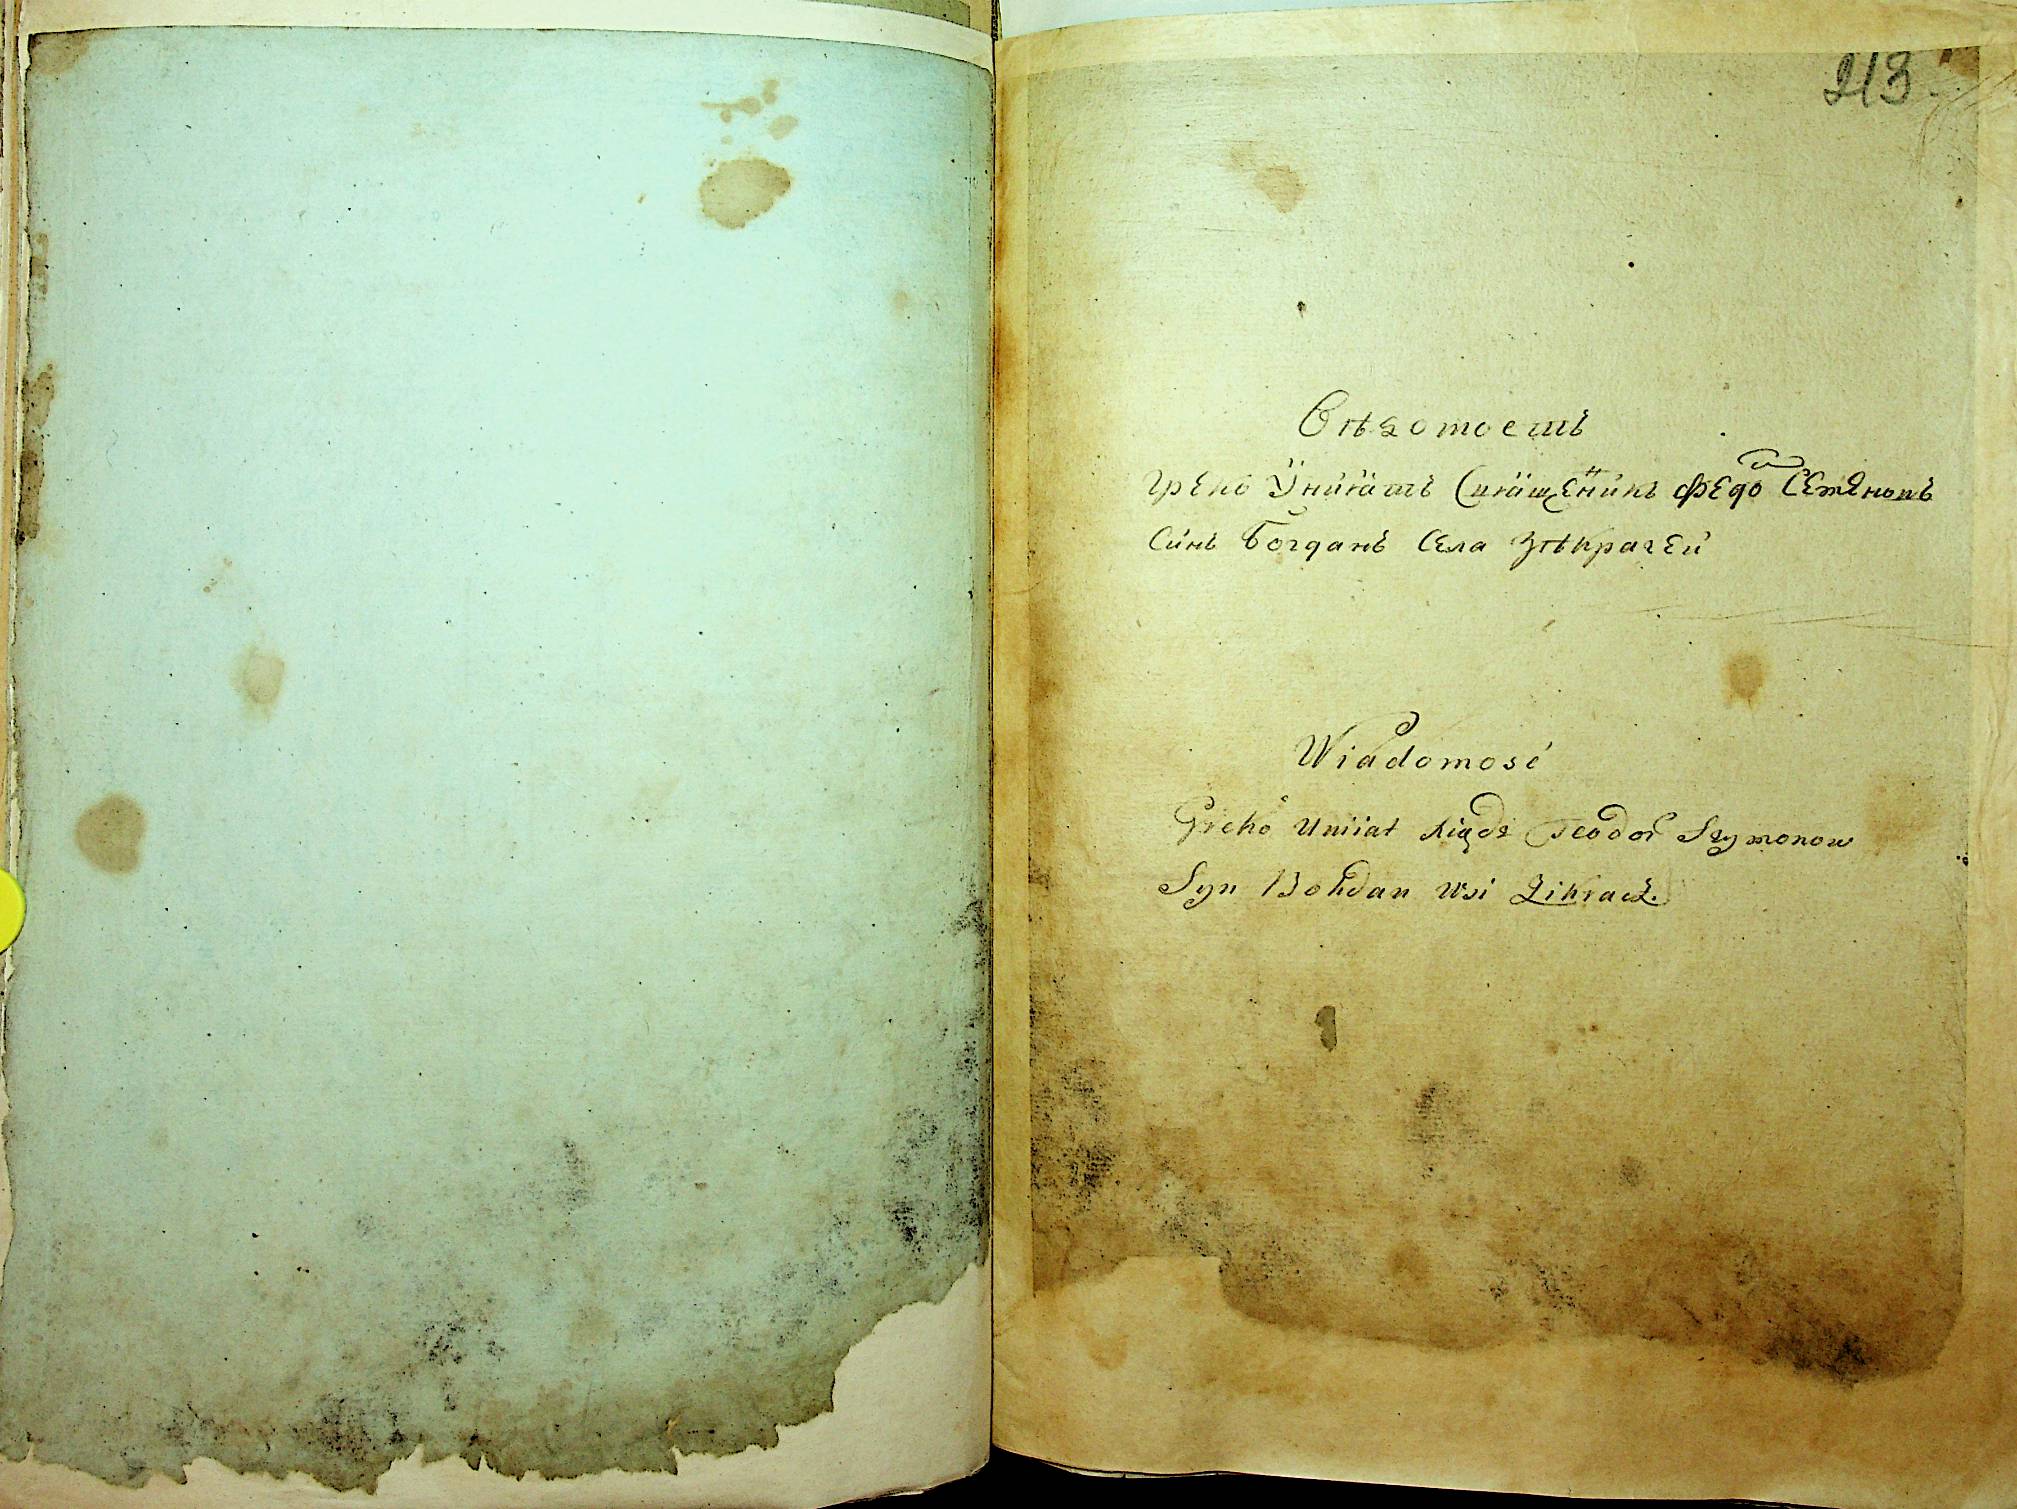 213.
Вѣдомость
Греко Ӱниятъ Священикъ Федоръ Семеновъ
Синъ Богданъ Села Зѣкрачей
Wiadomość
Greko Uniiat Xiądz Teodor Szymonow
Syn Bohdan Wsi Zikracz.